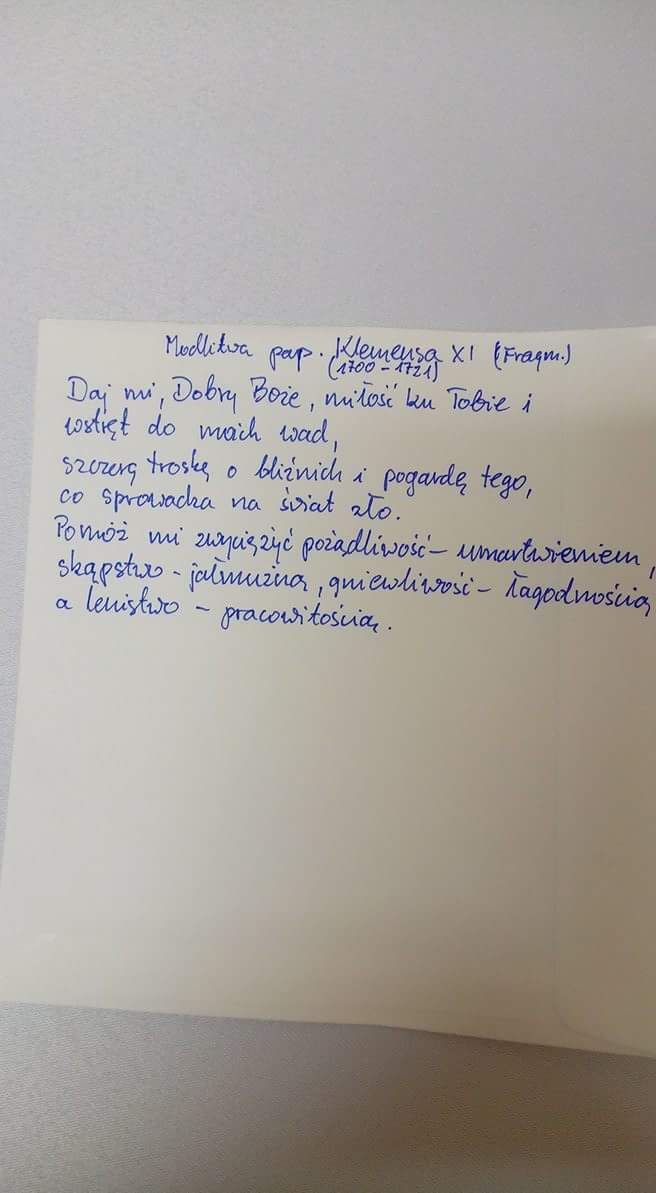 Modlitwa pap. Klemensa XI (Fragm.)
(1700-1721)
Daj mi, Dobry Boże, miłość ku Tobie i
wstręt do moich wad,
szczerą troskę o bliźnich i pogardę tego,
co sprowadza na świat zło.
Pomóż mi zwyciężyć pożądliwość - umartwieniem,
skąpstwo - jałmużną, gniewliwość - łagodnością
a lenistwo - pracowitością.